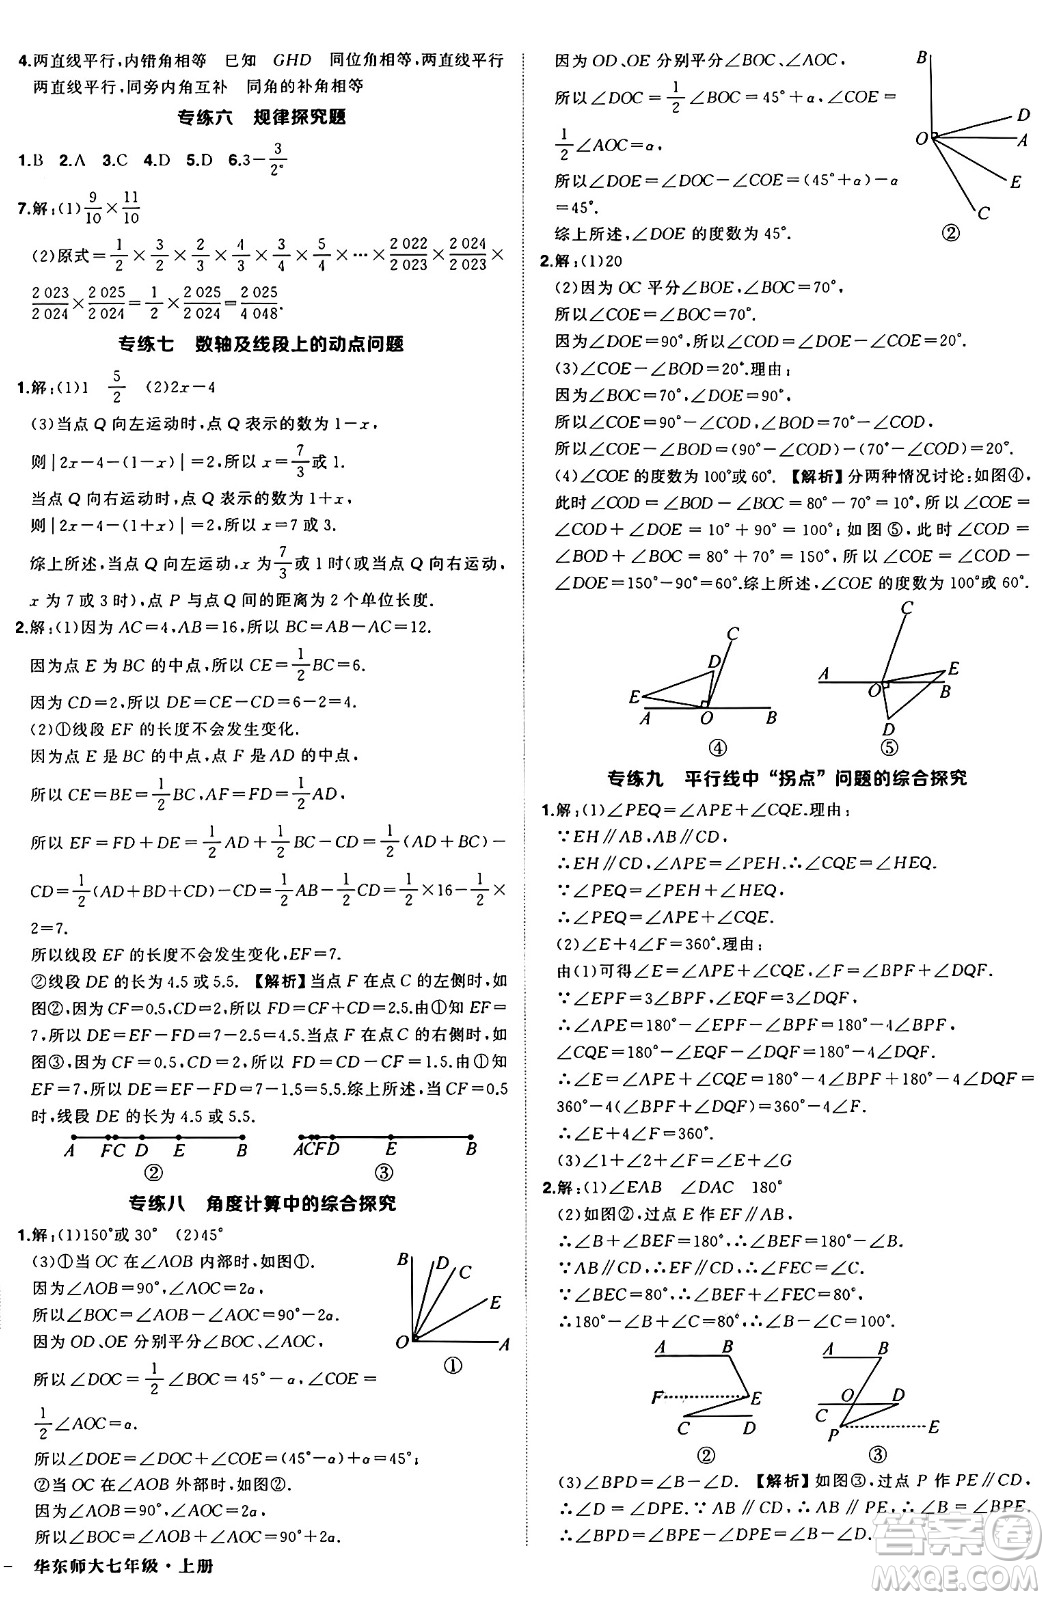 4.两直线平行，内错角相等　已知　GHD　同位角相等，两直线平行
两直线平行，同旁内角互补　同角的补角相等
专练六　规律探究题
1.B　2.A　3.C　4.D　5.D　6.3－3/2⁶
7.解：(1)9/10×11/10
(2)原式＝1/2×3/2×2/3×4/3×3/4×5/4×…×2 022/2 023×2 024/2 023×
2 023/2 024×2 025/2 024＝1/2×2 025/2 024＝2 025/4 048.
专练七　数轴及线段上的动点问题
1.解：(1)1　5/2　(2)2x－4
(3)当点 Q 向左运动时，点 Q 表示的数为 1－x，
则|2x－4－(1－x)|＝2，所以 x＝7/3或 1.
当点 Q 向右运动时，点 Q 表示的数为 1＋x，
则|2x－4－(1＋x)|＝2，所以 x＝7 或 3.
综上所述，当点 Q 向左运动，x 为 7/3 或 1(当点 Q 向右运动，
x 为 7 或 3)时，点 P 与点 Q 间的距离为 2 个单位长度.
2.解：(1)因为 AC＝4，AB＝16，所以 BC＝AB－AC＝12.
因为点 E 为 BC 的中点，所以 CE＝1/2BC＝6.
因为 CD＝2，所以 DE＝CE－CD＝6－2＝4.
(2)①线段 EF 的长度不会发生变化.
因为点 E 是 BC 的中点，点 F 是 AD 的中点，
所以 CE＝BE＝1/2BC，AF＝FD＝1/2AD，
所以 EF＝FD＋DE＝1/2AD＋1/2BC－CD＝1/2(AD＋BC)－
CD＝1/2(AD＋BD＋CD)－CD＝1/2AB－1/2CD＝1/2×16－1/2×
2＝7.
所以线段 EF 的长度不会发生变化，EF＝7.
②线段 DE 的长为 4.5 或 5.5.【解析】当点 F 在点 C 的左侧时，如
图②，因为 CF＝0.5，CD＝2，所以 FD＝CF＋CD＝2.5.由①知 EF＝
7，所以 DE＝EF－FD＝7－2.5＝4.5.当点 F 在点 C 的右侧时，如
图③，因为 CF＝0.5，CD＝2，所以 FD＝CD－CF＝1.5.由①知
EF＝7，所以 DE＝EF－FD＝7－1.5＝5.5.综上所述，当 CF＝0.5
时，线段 DE 的长为 4.5 或 5.5.
A　FC　D　E　B
②
ACFD　E　B
③
专练八　角度计算中的综合探究
1.解：(1)150°或 30°　(2)45°
(3)①当 OC 在∠AOB 内部时，如图①.
因为∠AOB＝90°，∠AOC＝2α，
所以∠BOC＝∠AOB－∠AOC＝90°－2α.
因为 OD、OE 分别平分∠BOC、∠AOC，
所以∠DOC＝1/2∠BOC＝45°－α，∠COE＝
1/2∠AOC＝α.
所以∠DOE＝∠DOC＋∠COE＝(45°－α)＋α＝45°.
②当 OC 在∠AOB 外部时，如图②.
因为∠AOB＝90°，∠AOC＝2α，
所以∠BOC＝∠AOB＋∠AOC＝90°＋2α.
B　D　C　E　O　A
①
华东师大七年级·上册
因为 OD、OE 分别平分∠BOC、∠AOC，
所以∠DOC＝1/2∠BOC＝45°＋α，∠COE＝
1/2∠AOC＝α，
所以∠DOE＝∠DOC－∠COE＝(45°＋α)－α
＝45°.
综上所述，∠DOE 的度数为 45°.
B　D　O　A　E　C
②
2.解：(1)20
(2)因为 OC 平分∠BOE，∠BOC＝70°，
所以∠COE＝∠BOC＝70°.
因为∠DOE＝90°，所以∠COD＝∠DOE－∠COE＝20°.
(3)∠COE－∠BOD＝20°.理由：
因为∠BOC＝70°，∠DOE＝90°，
所以∠COE＝90°－∠COD，∠BOD＝70°－∠COD，
所以∠COE－∠BOD＝(90°－∠COD)－(70°－∠COD)＝20°.
(4)∠COE 的度数为 100°或 60°.【解析】分两种情况讨论：如图④，
此时∠COD＝∠BOD－∠BOC＝80°－70°＝10°，所以∠COE＝
∠COD＋∠DOE＝10°＋90°＝100°；如图⑤，此时∠COD＝
∠BOD＋∠BOC＝80°＋70°＝150°，所以∠COE＝∠COD－
∠DOE＝150°－90°＝60°.综上所述，∠COE 的度数为 100°或 60°.
C　D　E　A　O　B
④
C　A　E　O　B　D
⑤
专练九　平行线中“拐点”问题的综合探究
1.解：(1)∠PEQ＝∠APE＋∠CQE.理由：
∵EH∥AB，AB∥CD，
∴EH∥CD，∠APE＝∠PEH.∴∠CQE＝∠HEQ.
∵∠PEQ＝∠PEH＋∠HEQ，
∴∠PEQ＝∠APE＋∠CQE.
(2)∠E＋4∠F＝360°.理由：
由(1)可得∠E＝∠APE＋∠CQE，∠F＝∠BPF＋∠DQF.
∵∠EPF＝3∠BPF，∠EQF＝3∠DQF，
∴∠APE＝180°－∠EPF－∠BPF＝180°－4∠BPF，
∠CQE＝180°－∠EQF－∠DQF＝180°－4∠DQF.
∴∠E＝∠APE＋∠CQE＝180°－4∠BPF＋180°－4∠DQF＝
360°－4(∠BPF＋∠DQF)＝360°－4∠F.
∴∠E＋4∠F＝360°.
(3)∠1＋∠2＋∠F＝∠E＋∠G
2.解：(1)∠EAB　∠DAC　180°
(2)如图②，过点 E 作 EF∥AB，
∴∠B＋∠BEF＝180°，∴∠BEF＝180°－∠B.
∵AB∥CD，∴EF∥CD，∴∠FEC＝∠C.
∵∠BEC＝80°，∴∠BEF＋∠FEC＝80°，
∴180°－∠B＋∠C＝80°，∴∠B－∠C＝100°.
A　B　F　E　C　D
②
A　B　O　D　C　P　E
③
(3)∠BPD＝∠B－∠D.【解析】如图③，过点 P 作 PE∥CD，
∴∠D＝∠DPE.∵AB∥CD，∴AB∥PE，∴∠B＝∠BPE.
答案圈
MXQE.COM